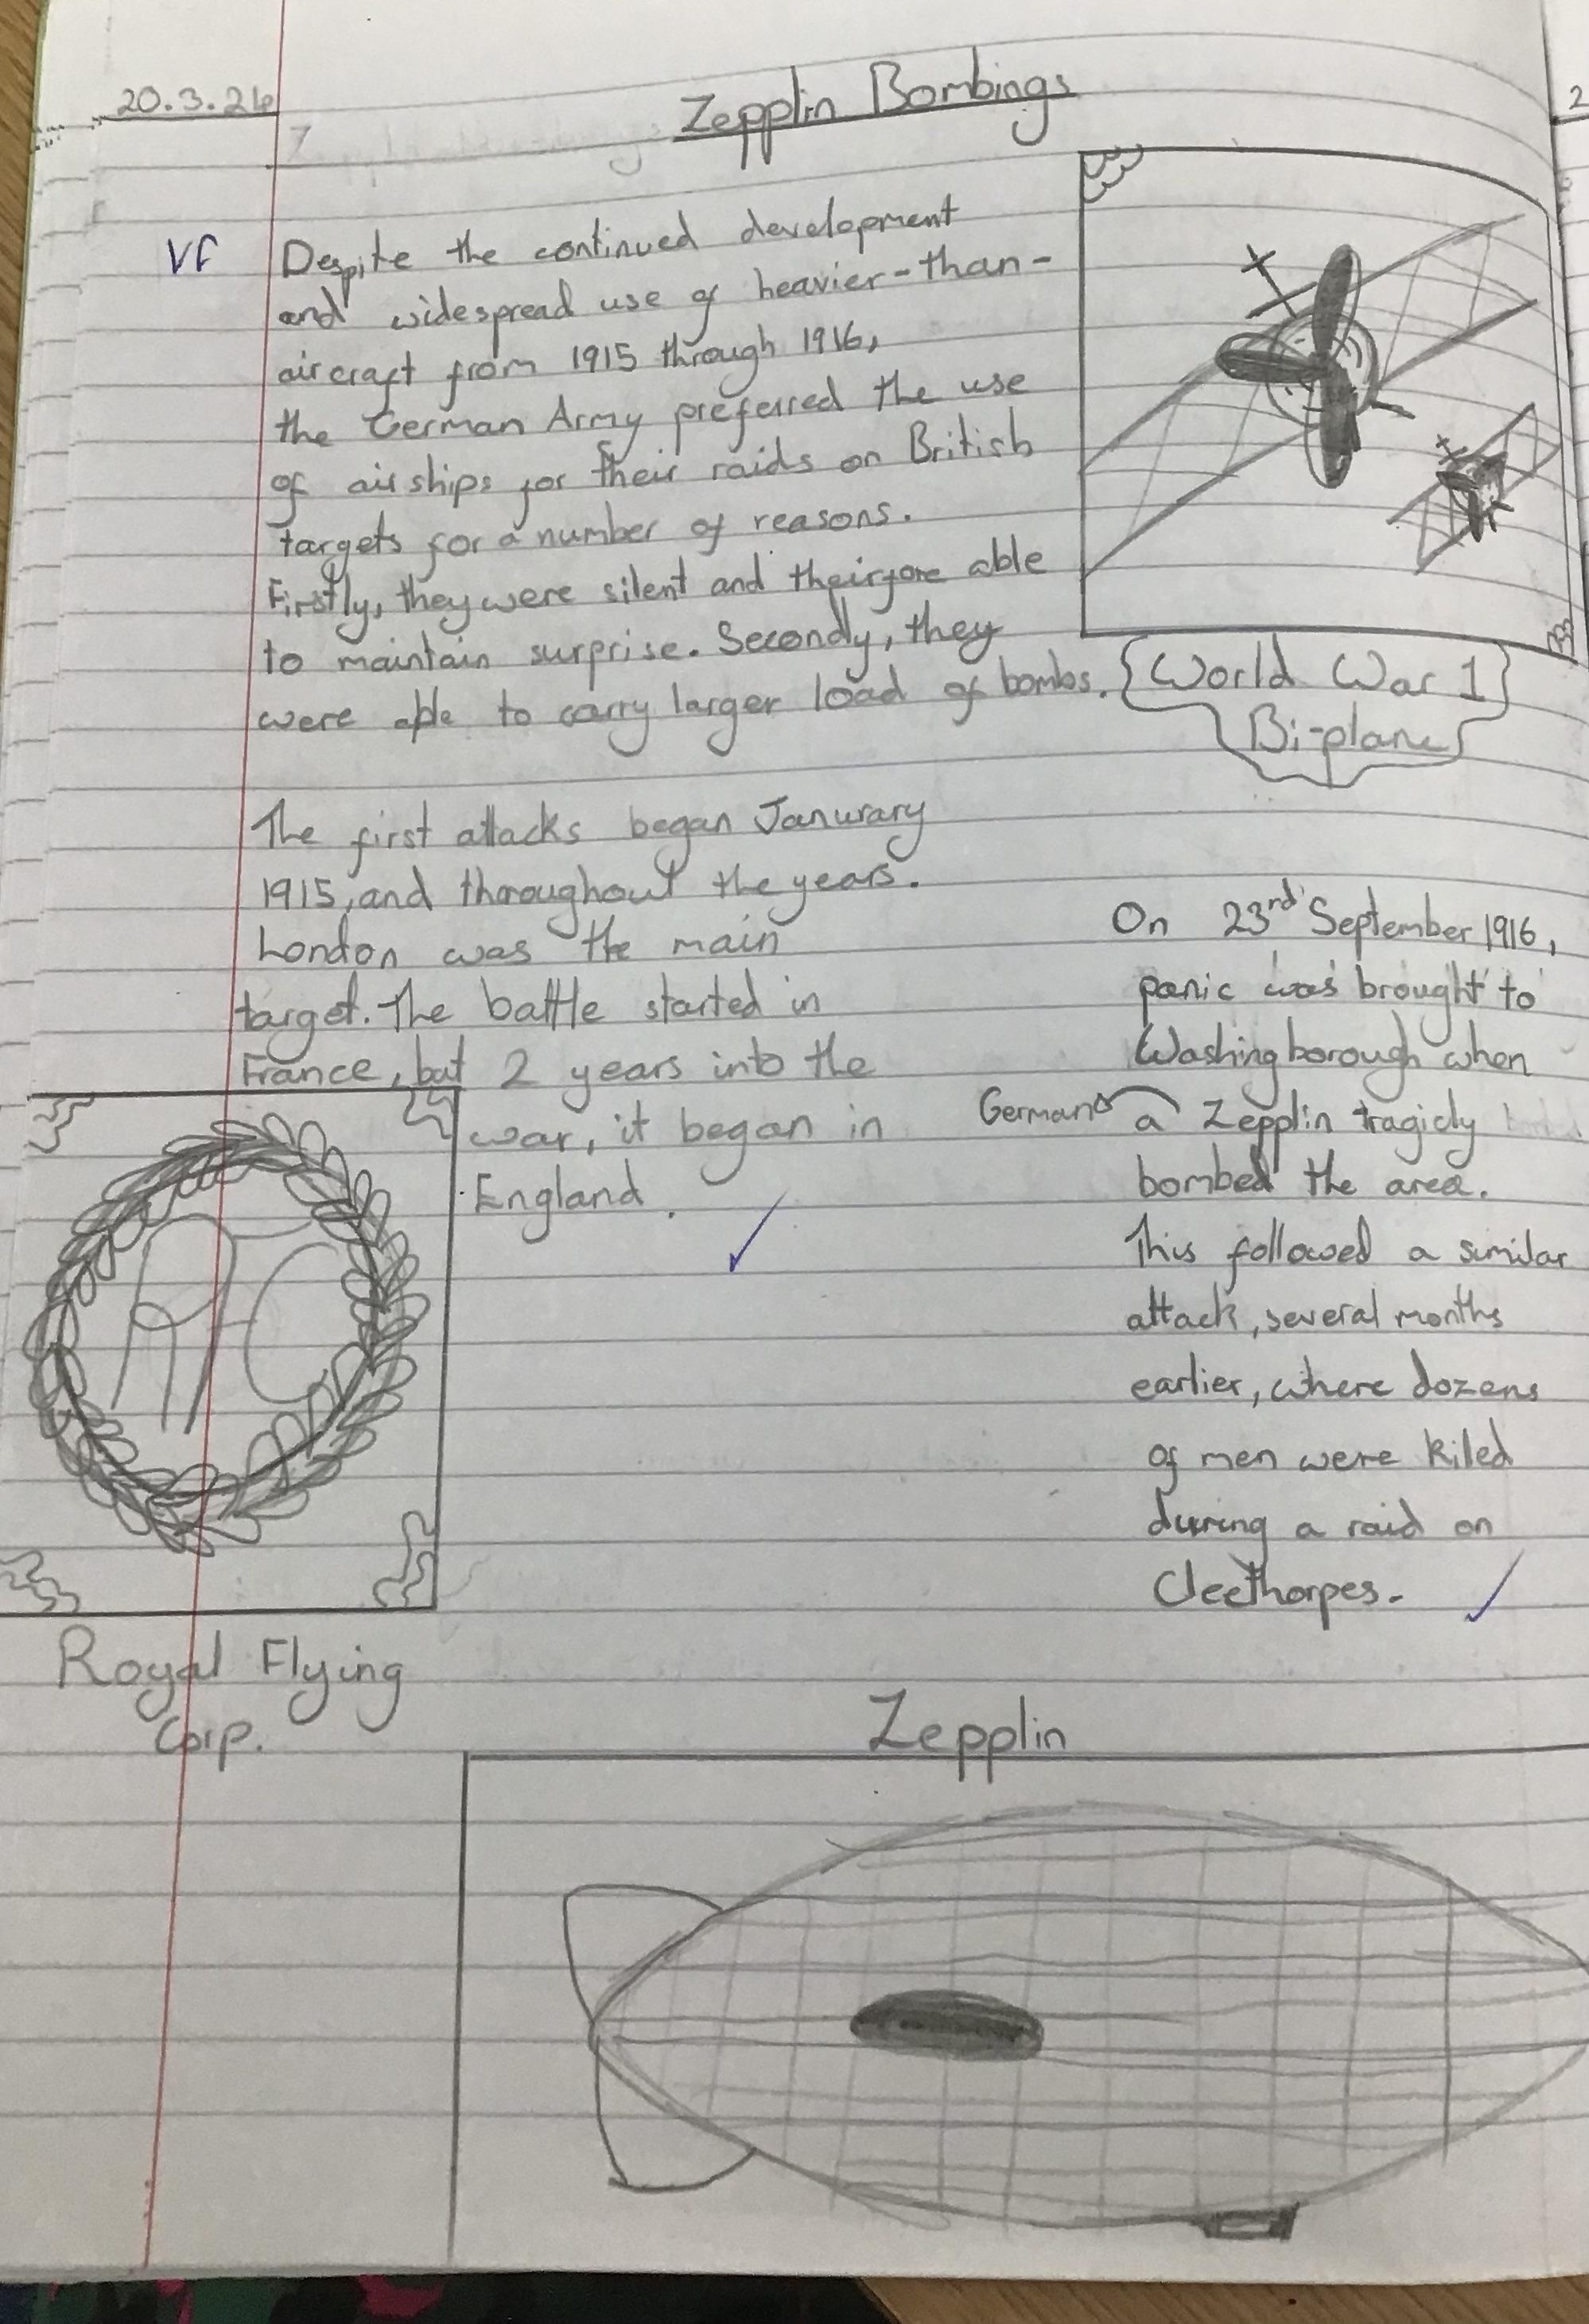 20.3.26
Zepplin Bombings
VF
Despite the continued development
and widespread use of heavier-than-
aircraft from 1915 through 1916,
the German Army preferred the use
of airships for their raids on British
targets for a number of reasons.
Firstly, they were silent and theirfore able
to maintain surprise. Secondly, they
were able to carry larger load of bombs.
World War 1
Bi-plane
The first attacks began Janurary
1915, and throughout the years.
London was the main
target. The battle started in
France, but 2 years into the
war, it began in
England.
On 23rd September 1916,
panic was brought to
Washingborough when
German a Zepplin tragicly
bombed the area.
This followed a similar
attack, several months
earlier, where dozens
of men were kiled
during a raid on
Cleethorpes.
RFC
Royal Flying
Corp.
Zepplin